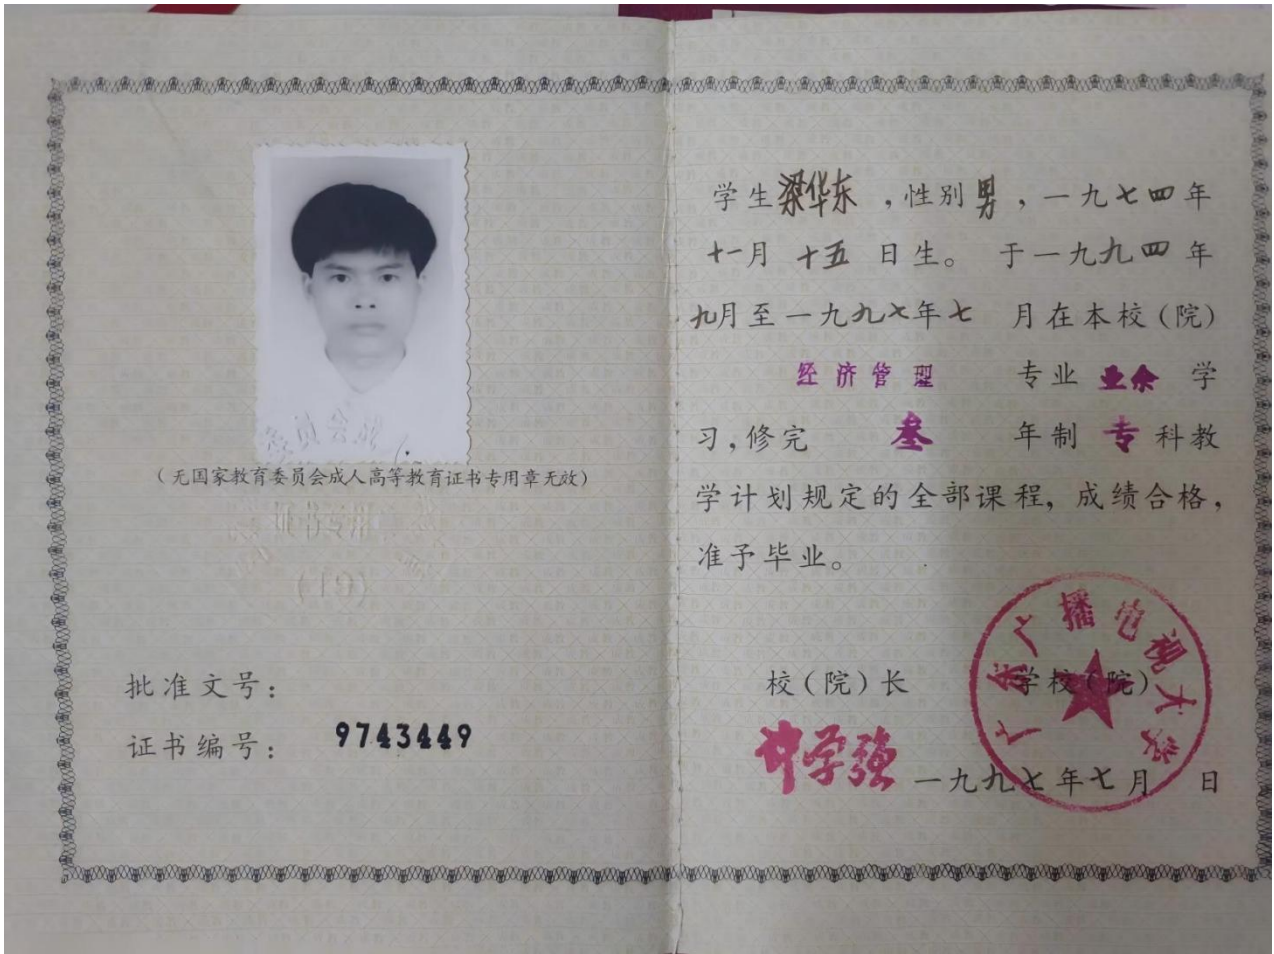 委员会成
(无国家教育委员会成人高等教育证书专用章无效)
批准文号:
证书编号: 9743449
学生梁华东,性别男,一九七四年
十一月十五日生。于一九九四年
九月至一九九七年七月在本校(院)
经济管理 专业业余学
习,修完叁年制专科教
学计划规定的全部课程,成绩合格,
准予毕业。
校(院)长 学校(院)
许学强
一九九七年七月 日
广东广播电视大学